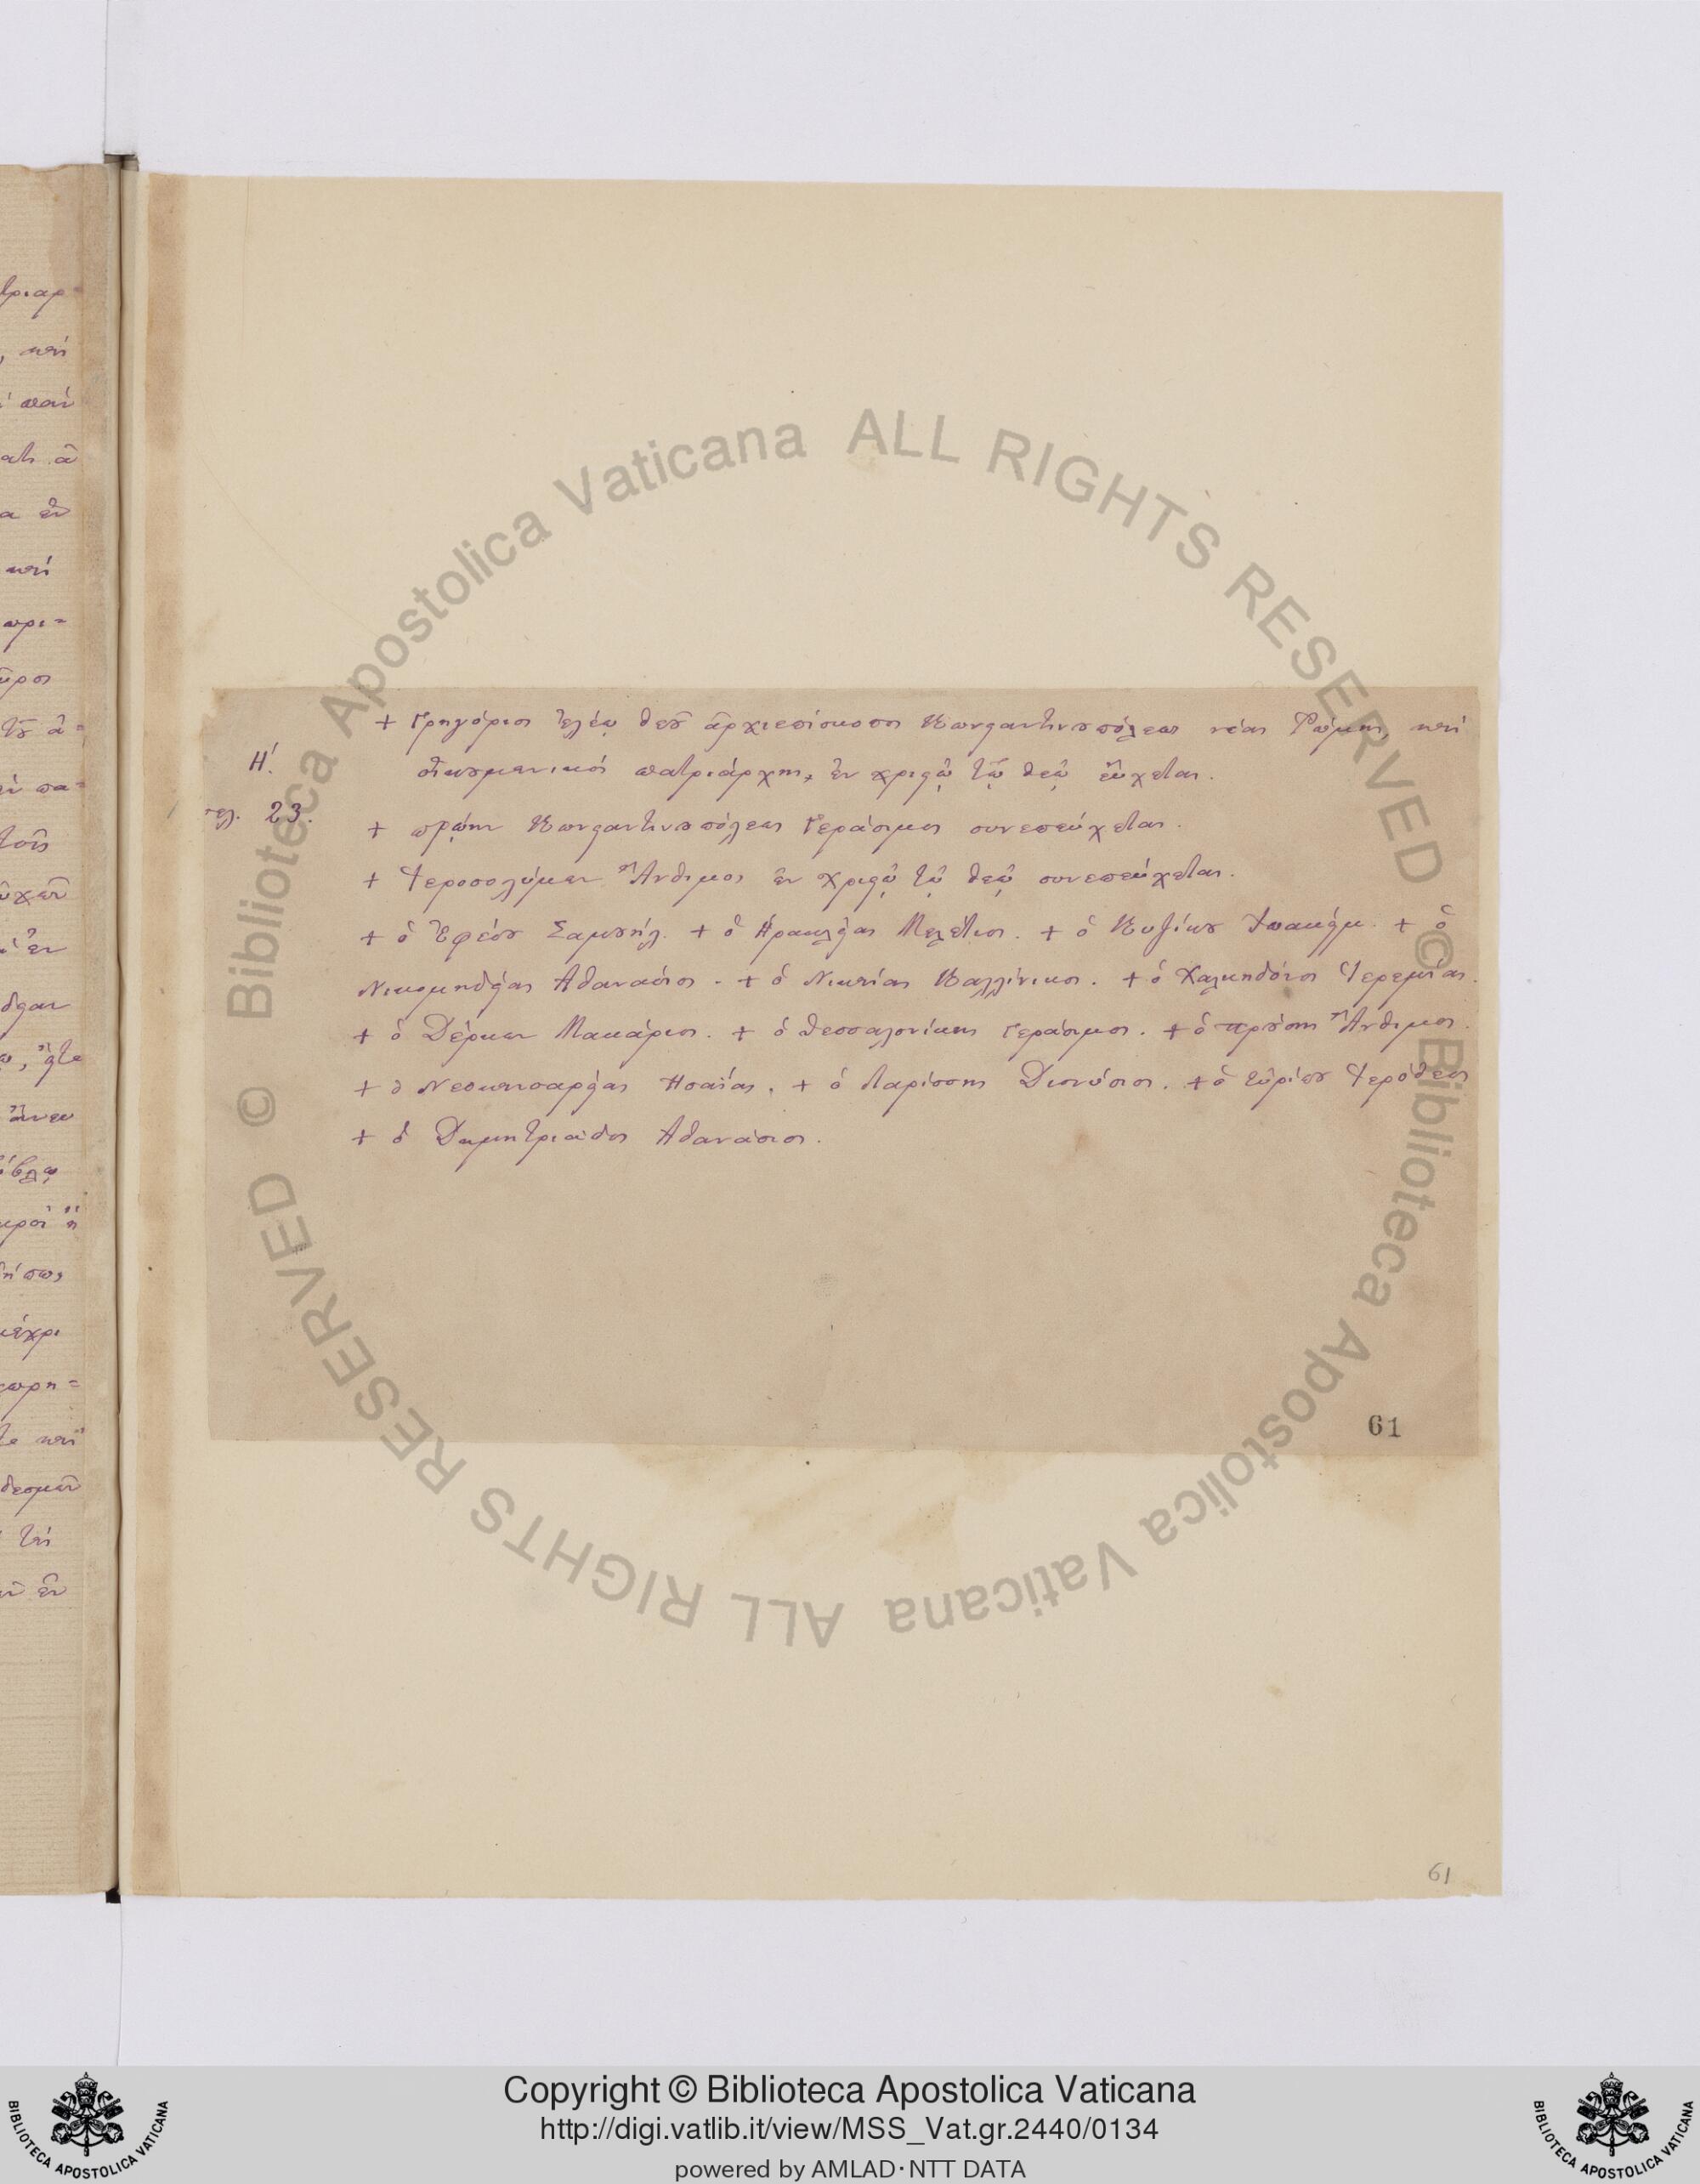 + Γρηγόριος ἐλέῳ θεοῦ ἀρχιεπίσκοπος Κωνσταντινουπόλεως νέας Ῥώμης, καὶ
Η΄. οἰκουμενικὸς πατριάρχης, ἐν χριστῷ τῷ θεῷ εὔχεται.
σελ. 23. + πρῴην Κωνσταντινουπόλεως Γεράσιμος συνεπεύχεται.
+ Ἱεροσολύμων Ἄνθιμος ἐν χριστῷ τῷ θεῷ συνεπεύχεται.
+ ὁ Ἐφέσου Σαμουήλ. + ὁ Ἡρακλείας Μελέτιος. + ὁ Κυζίκου Ἰωακείμ. + ὁ
Νικομηδείας Ἀθανάσιος. + ὁ Νικαίας Καλλίνικος. + ὁ Χαλκηδόνος Ἱερεμίας.
+ ὁ Δέρκων Μακάριος. + ὁ Θεσσαλονίκης Γεράσιμος. + ὁ προύσης Ἄνθιμος.
+ ὁ Νεοκαισαρείας Ἡσαΐας. + ὁ Λαρίσσης Διονύσιος. + ὁ Εὐρίπου Ἱερόθεος
+ ὁ Δημητριάδος Ἀθανάσιος.
61
61
Biblioteca Apostolica Vaticana ALL RIGHTS RESERVED ©
Biblioteca Apostolica Vaticana ALL RIGHTS RESERVED ©
Copyright © Biblioteca Apostolica Vaticana
http://digi.vatlib.it/view/MSS_Vat.gr.2440/0134
powered by AMLAD·NTT DATA
BIBLIOTECA APOSTOLICA VATICANA
BIBLIOTECA APOSTOLICA VATICANA